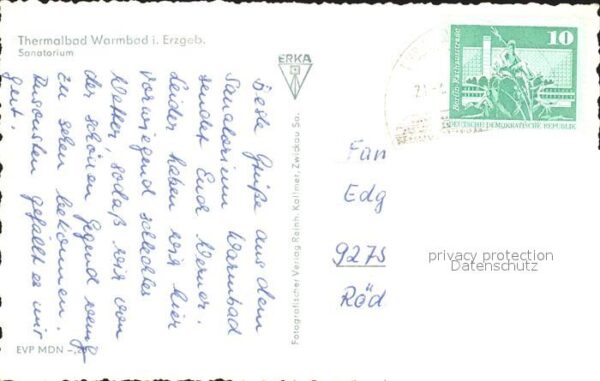 Thermalbad Warmbad i. Erzgeb.
Sanatorium
Beste Grüße aus dem
Sanatorium Warmbad
sendet Euch Werner.
Leider haben wir hier
vorwiegend schlechtes
Wetter, sodaß wir von
der schönen Gegend wenig
zu sehen bekommen.
Ansonsten gefällt es mir
gut.
EVP MDN -,20
ERKA
Fotografischer Verlag Reinh. Kallmer, Zwickau Sa.
10
Berlin-Rathausstraße
DEUTSCHE DEMOKRATISCHE REPUBLIK
Fam
Edg
9275
Röd
privacy protection
Datenschutz